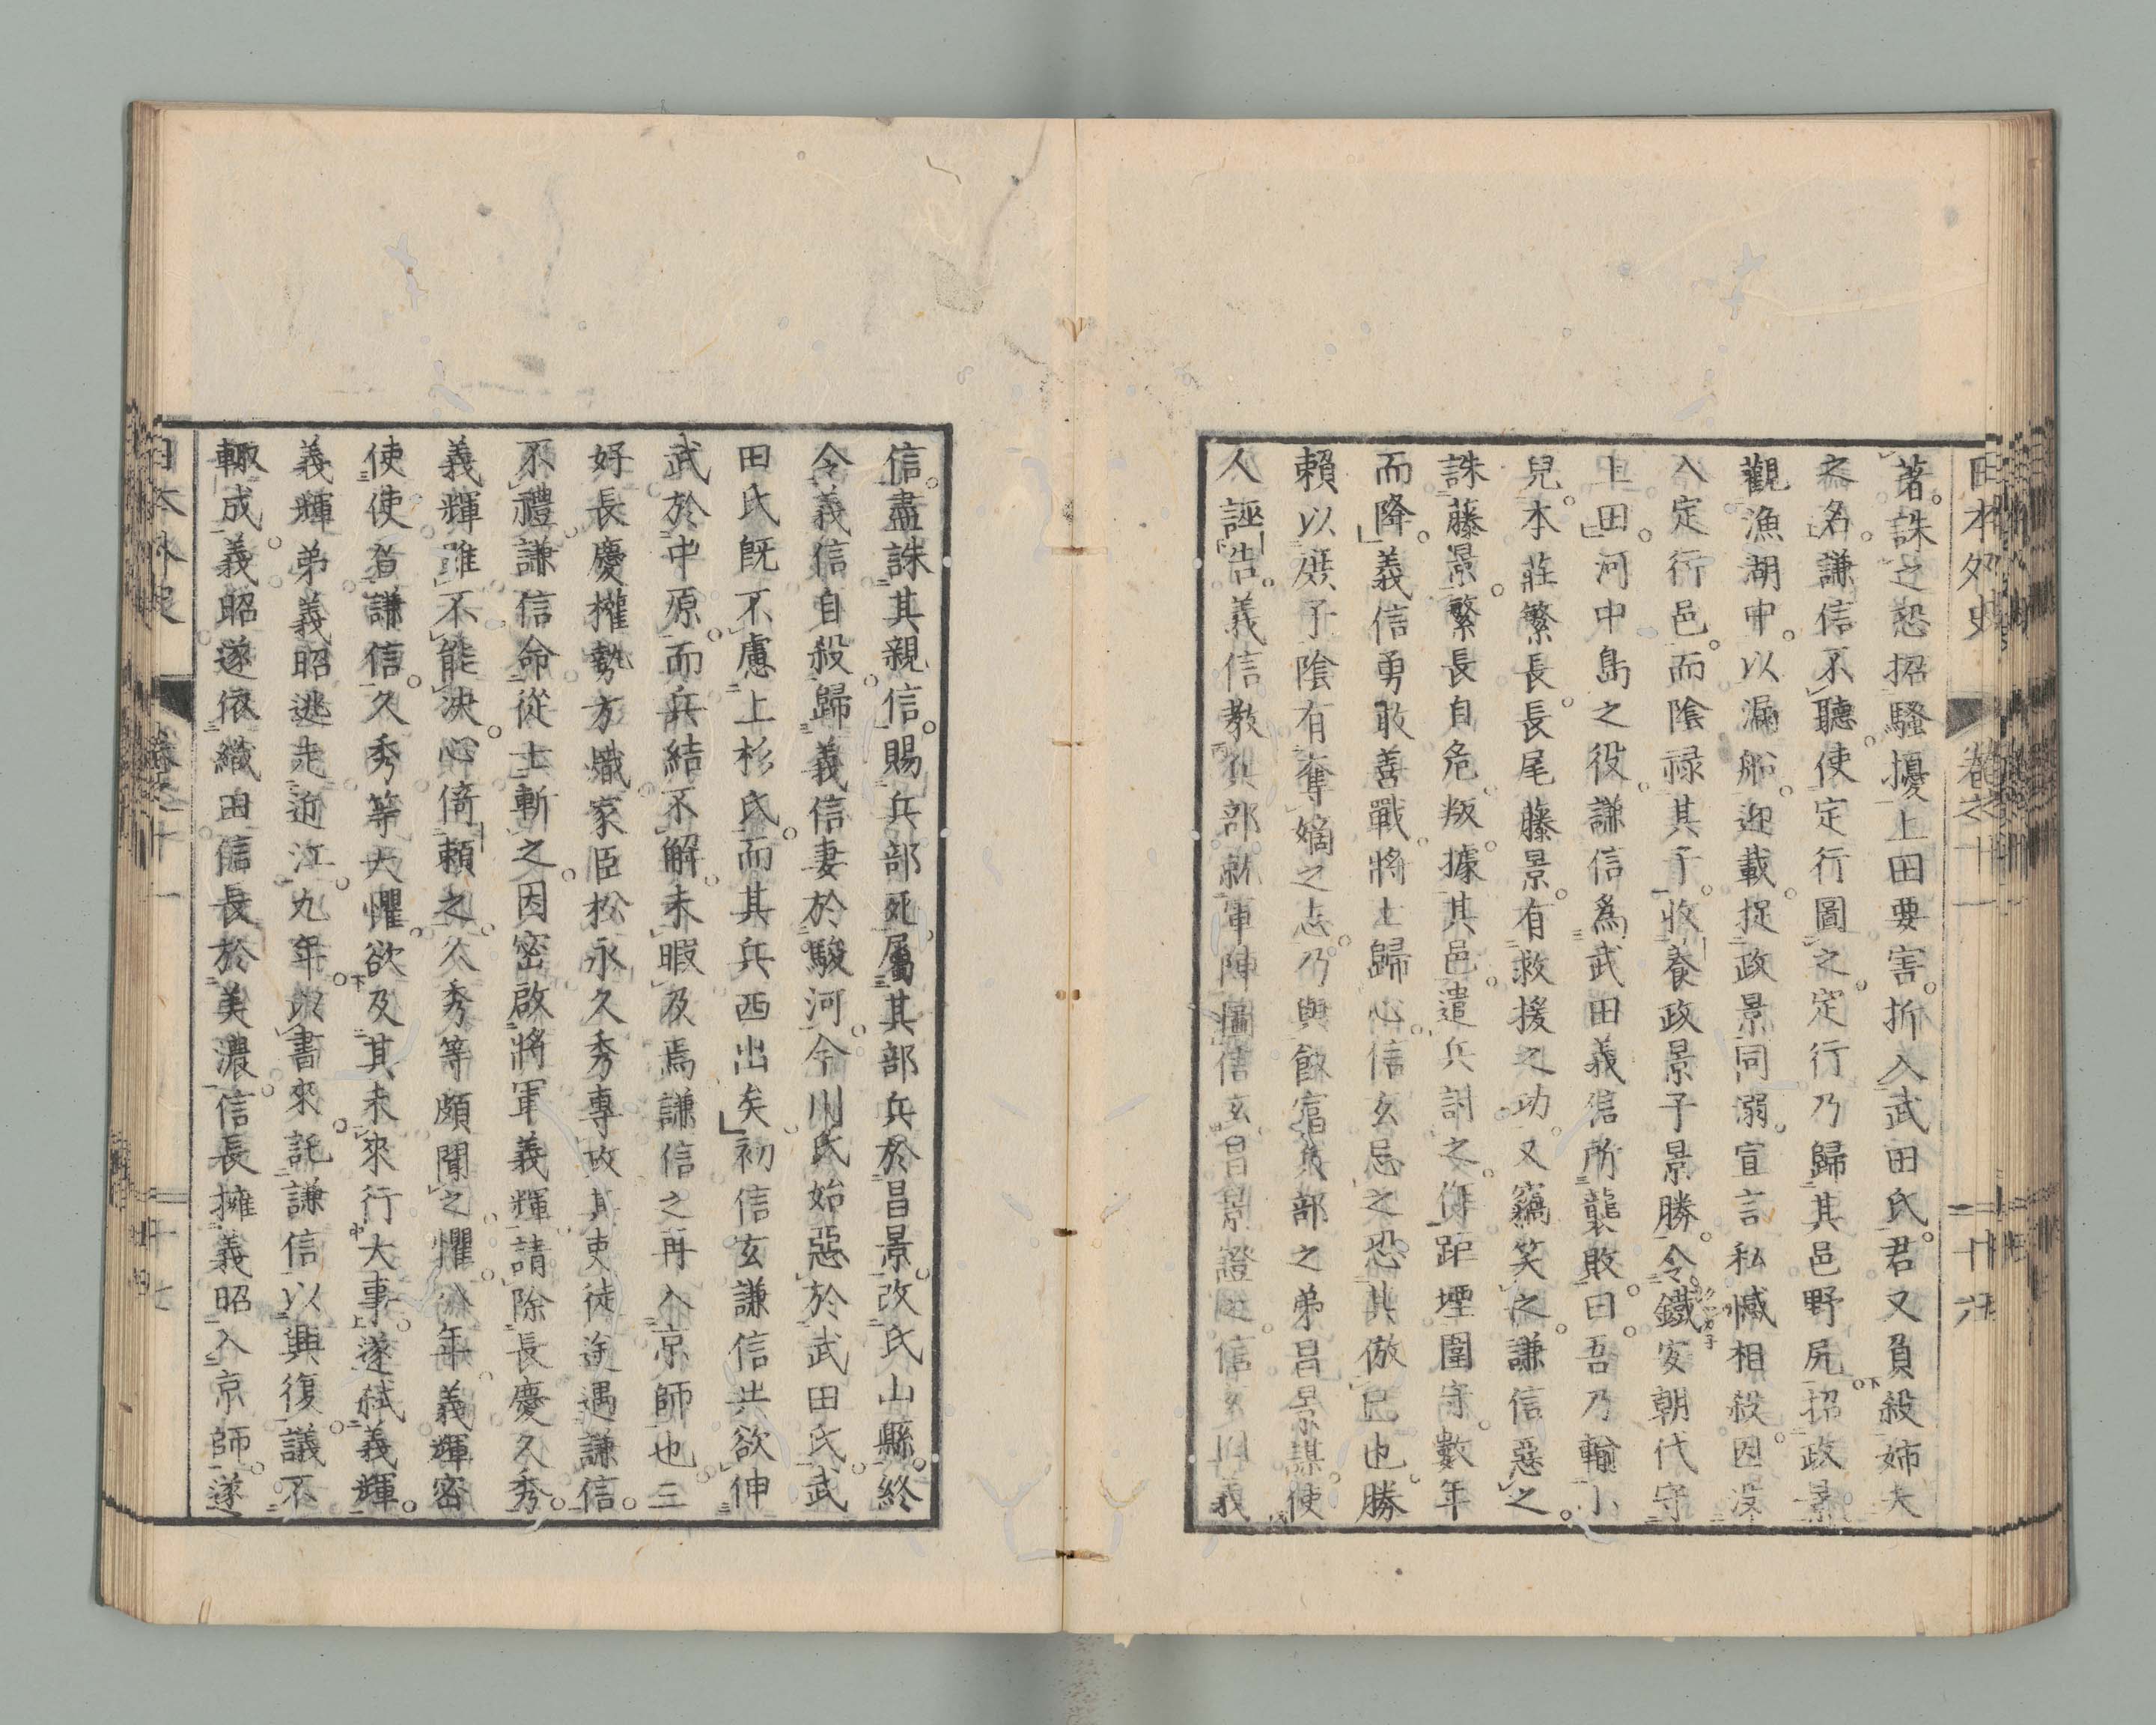 日本外史 卷之十一 二十六
著。誅之恐招騷擾上田要害。折入武田氏。君又負殺姉夫
之名。謙信不聽。使定行圖之。定行乃歸其邑野尻。招政景
觀漁湖中。以漏船迎載。捉政景同溺。宣言私憾相殺。因沒
入定行邑。而陰祿其子。收養政景子景勝。令鐵安朝代守
上田。河中島之役。謙信爲武田義信所襲敗。曰。吾乃輸小
兒。本莊繁長。長尾藤景。有救援之功。又竊笑之。謙信惡之。
誅藤景。繁長自危。叛。據其邑。遣兵討之。侮距堙圍守。數年
而降。義信勇敢善戰。將士歸心。信玄忌之。恐其倣己也。勝
賴以庶子陰有奪嫡之志。乃與飫富兵部之弟昌景謀。使
人誣告。義信敎兵部就軍陣圖信玄。昌景證之。信玄囚義
信。盡誅其親信。賜兵部死。屬其部兵於昌景。改氏山縣。終
令義信自殺。歸義信妻於駿河。今川氏始惡於武田氏。武
田氏既不慮上杉氏。而其兵西出矣。初信玄謙信共欲伸
武於中原。而兵結不解。未暇及焉。謙信之再入京師也。三
好長慶權勢方熾。家臣松永久秀專政。其吏徒途遇謙信
不禮。謙信命從士斬之。因密啟將軍義輝。請除長慶久秀。
義輝雖不能決。心倚賴之。久秀等頗聞之懼。八年。義輝密
使使者謙信。久秀等大懼。欲及其未來行大事。遂弑義輝。
義輝弟義昭逃走近江。九年。以書來託謙信。以興復。議不
輙成。義昭遂依織田信長於美濃。信長擁義昭入京師。遂
日本外史 卷之十一 二十七